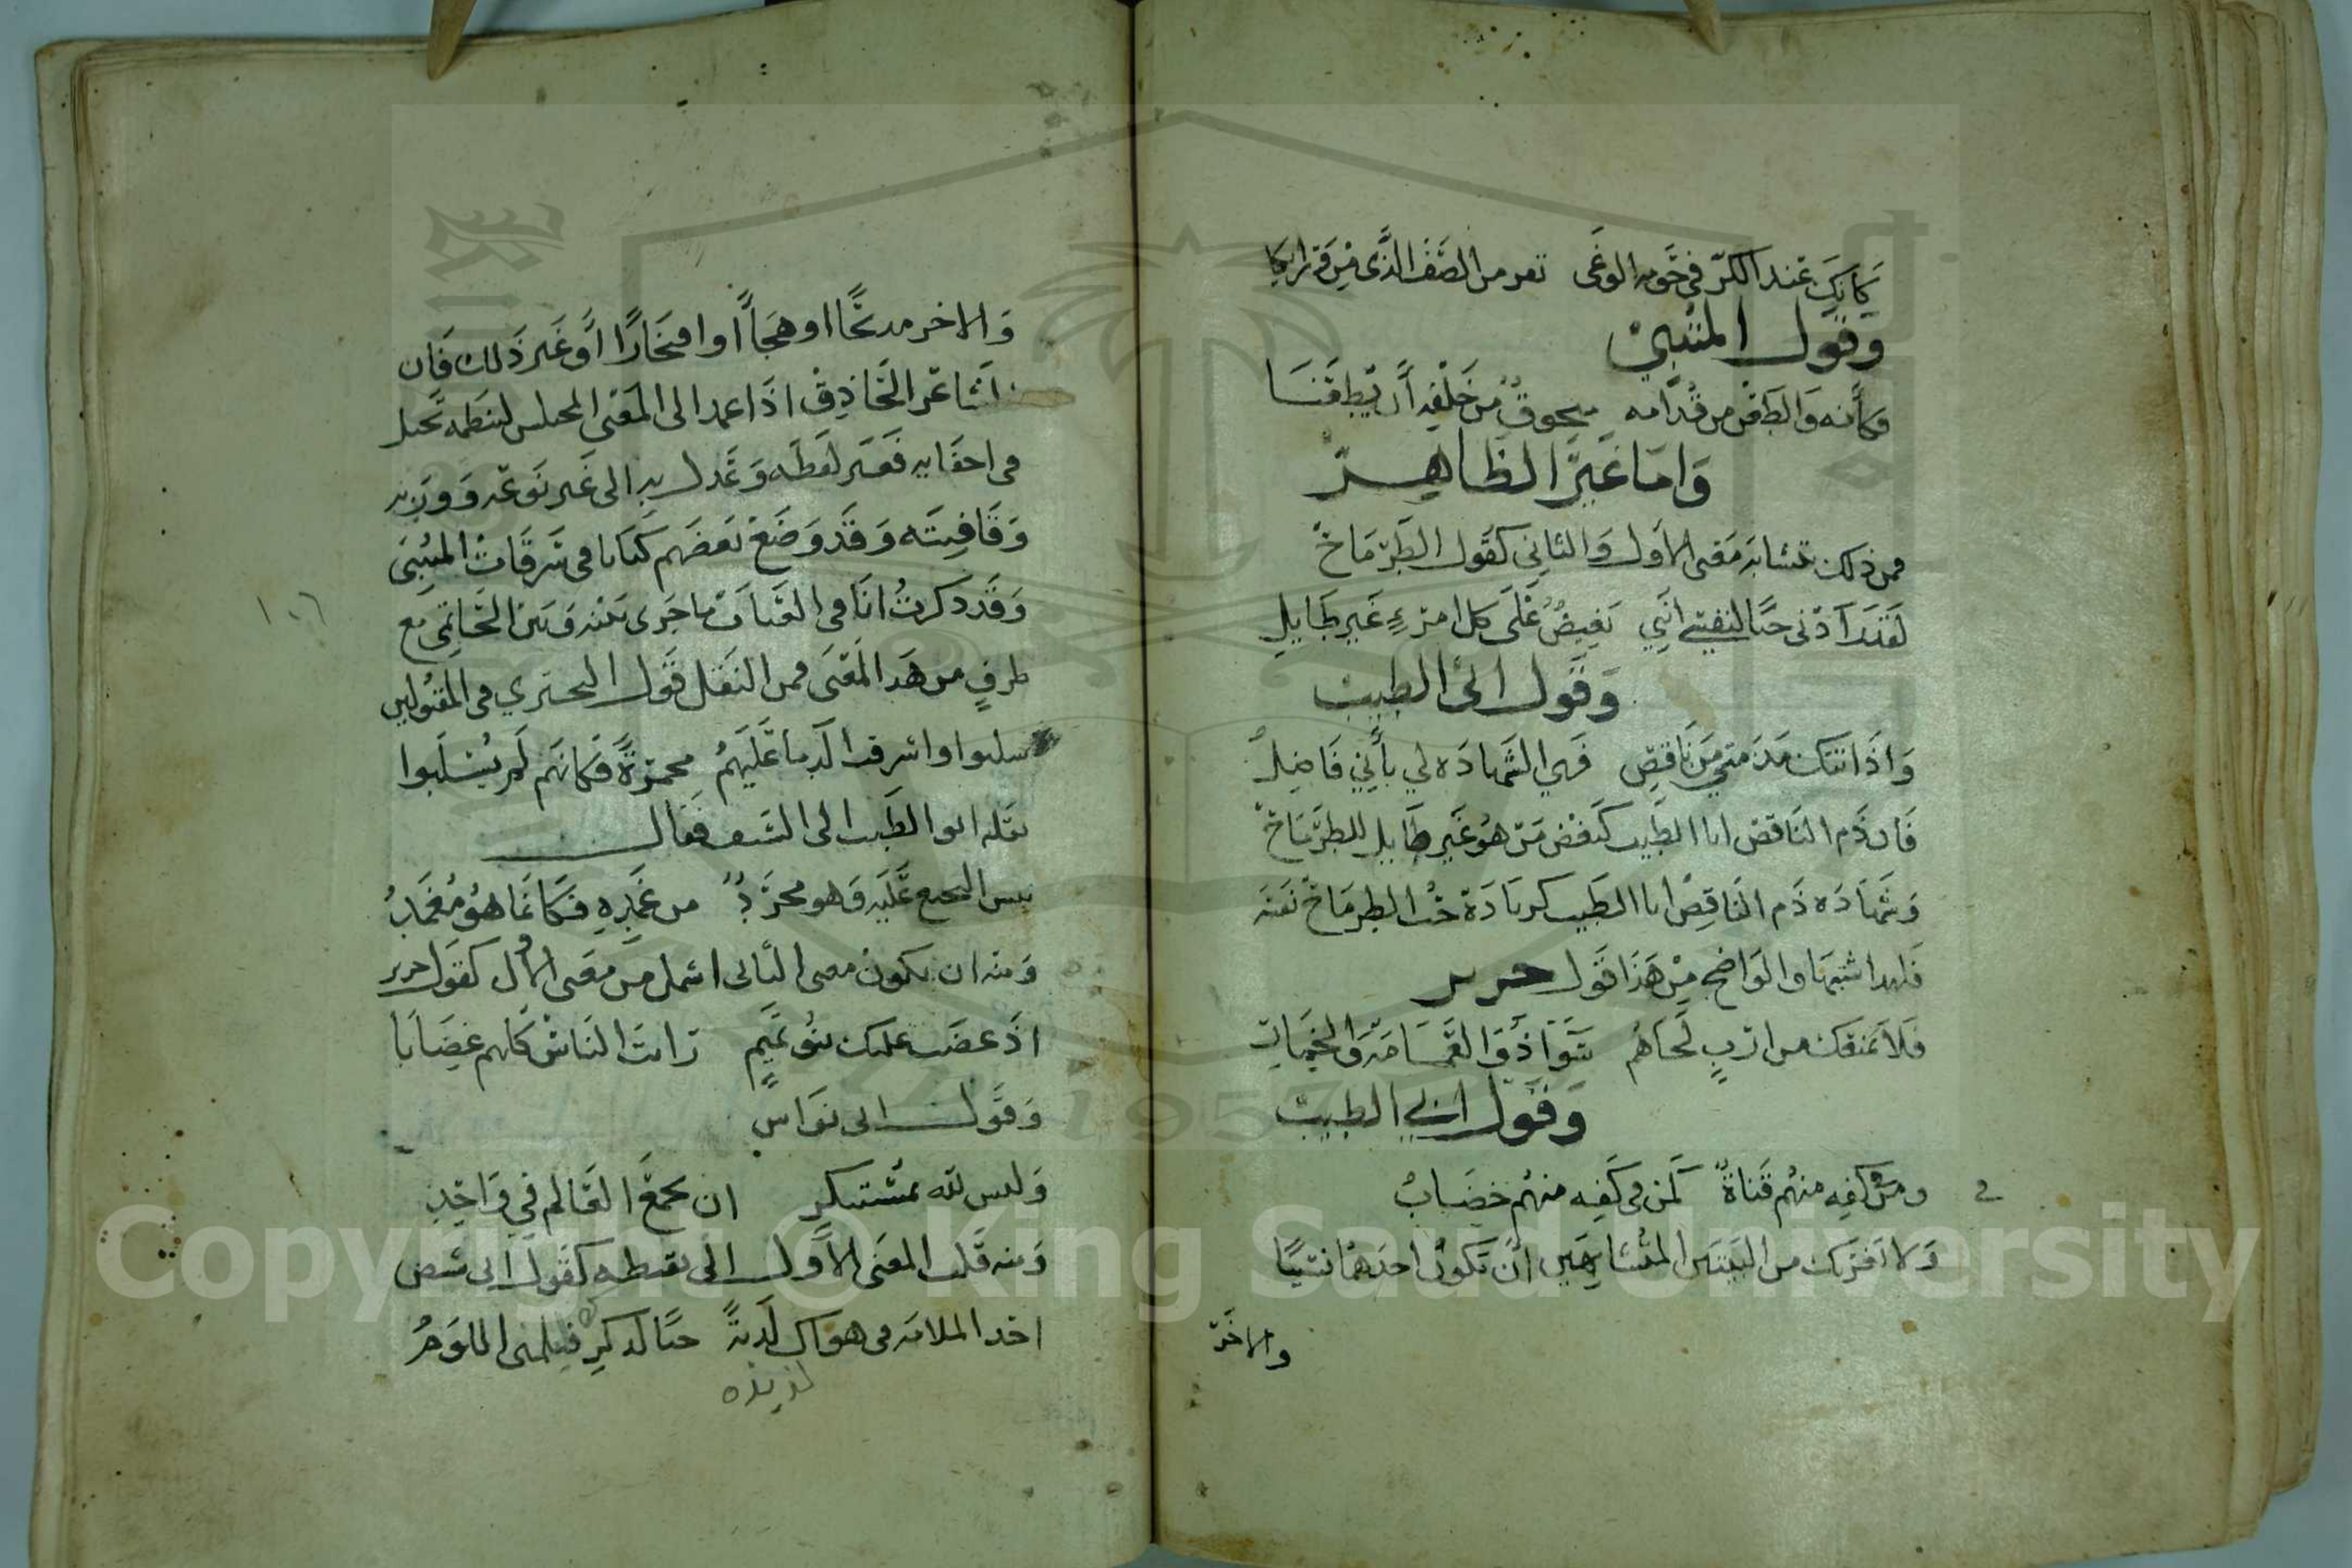 كأنك عند الكرّ في حومه الوغى تفر من الصَّف الذَّي مِن ورايكا
وَقول المتنبيْ
فكأنه وَالطَعْن من قُدّامه متخوفٌ مِن خَلْفِه أن يُطعَنَا
وَامَا غَيْرَ الظاهِر
فمن ذلك تشابه مَعْنى الاول وَالثانِي كقَول الطرِمَاحَ
لقد زادَني حبًا لنفسي انَّنِي بَغيضٌ عَلَى كل امرءٍ غَير طَايل
وَقول ابى الطيب
وَاذَا اتتك مذمتي مِن نَاقِص فهي الشهادَه لي بأَنِي فَاضِل
فَان ذَم الناقص ابا الطَيب كبغض مَن هُو غَير طَايل للطرِمَاحَ
وَشَهادَه ذَم النَاقِص ابا الطَيب كزيادَة حُب الطرمَاحَ نفسَه
فلهذا اشتبها والوَاضح مِن هَذَا قول جرير
فَلَا يَمنعَك من اربٍ لحَاهُم سَوَاءٌ ذو العمامَة وَالخِمَار
وَقول ابي الطيب
ومن فى كفِه منهُم قَناةٌ كمَن فى كَفِه منهُم خِضَابُ
وَلا يَغرنك من البَيتَين المتشابِهَين أن يَكونَ احدهُمَا نسَيبًا
والاخَر
وَالاخر مديحًا او هجاءً او افتخَارًا أو غَير ذَلك فَان
الشَاعر الحَاذِق اذَا عمد الى المعْنى المختلس لينظمه تحيل
فى اخفَايه فغَير لفظَه وَعَدل بهِ الى غَير نَوعه وَوزنه
وَقَافِيتَه وَقَد وَضَعَ بَعضَهم كتَابا فى سَرقَات المتنبي
وَقد ذكرتُ انَا فى العتاب ما جَرى بَينه وَبين الحَاتمي مع
١٠٦
طرفٍ من هَذا المَعنَى فمن النَقل قَول البحتري فى المقتولين
سلبوا واشرقت الدما عَلَيهُم محمرّةً فكانَهم لَم يُسلَبوا
نقله ابو الطَيب الى السَيف فقال
يبس النجيع عَلَيه وَهو مجرَّدٌ من غَمدِهِ فَكَانمَا هُو مُغمَدُ
وَمنه ان يكون معنى الثانى اشمل من معَنى الأول كقول جرير
اذَا غضبَت عليك بنُو تَميمٍ رايتَ النَاسَ كلهم غِضَابَا
وَقَول ابى نوَاسٍ
وَليس لله بمُستنكرٍ ان يجمَعَ العَالم فِي وَاحِدِ
وَمنه قَلب المعَنى الاَول الى نقيضه كقَول ابى شيص
اجد الملامَه فى هوَاك لَذيذةً حبًا لذكرِكِ فليلمنى اللوَّمُ
لذيذه
Copyright © King Saud University
1957